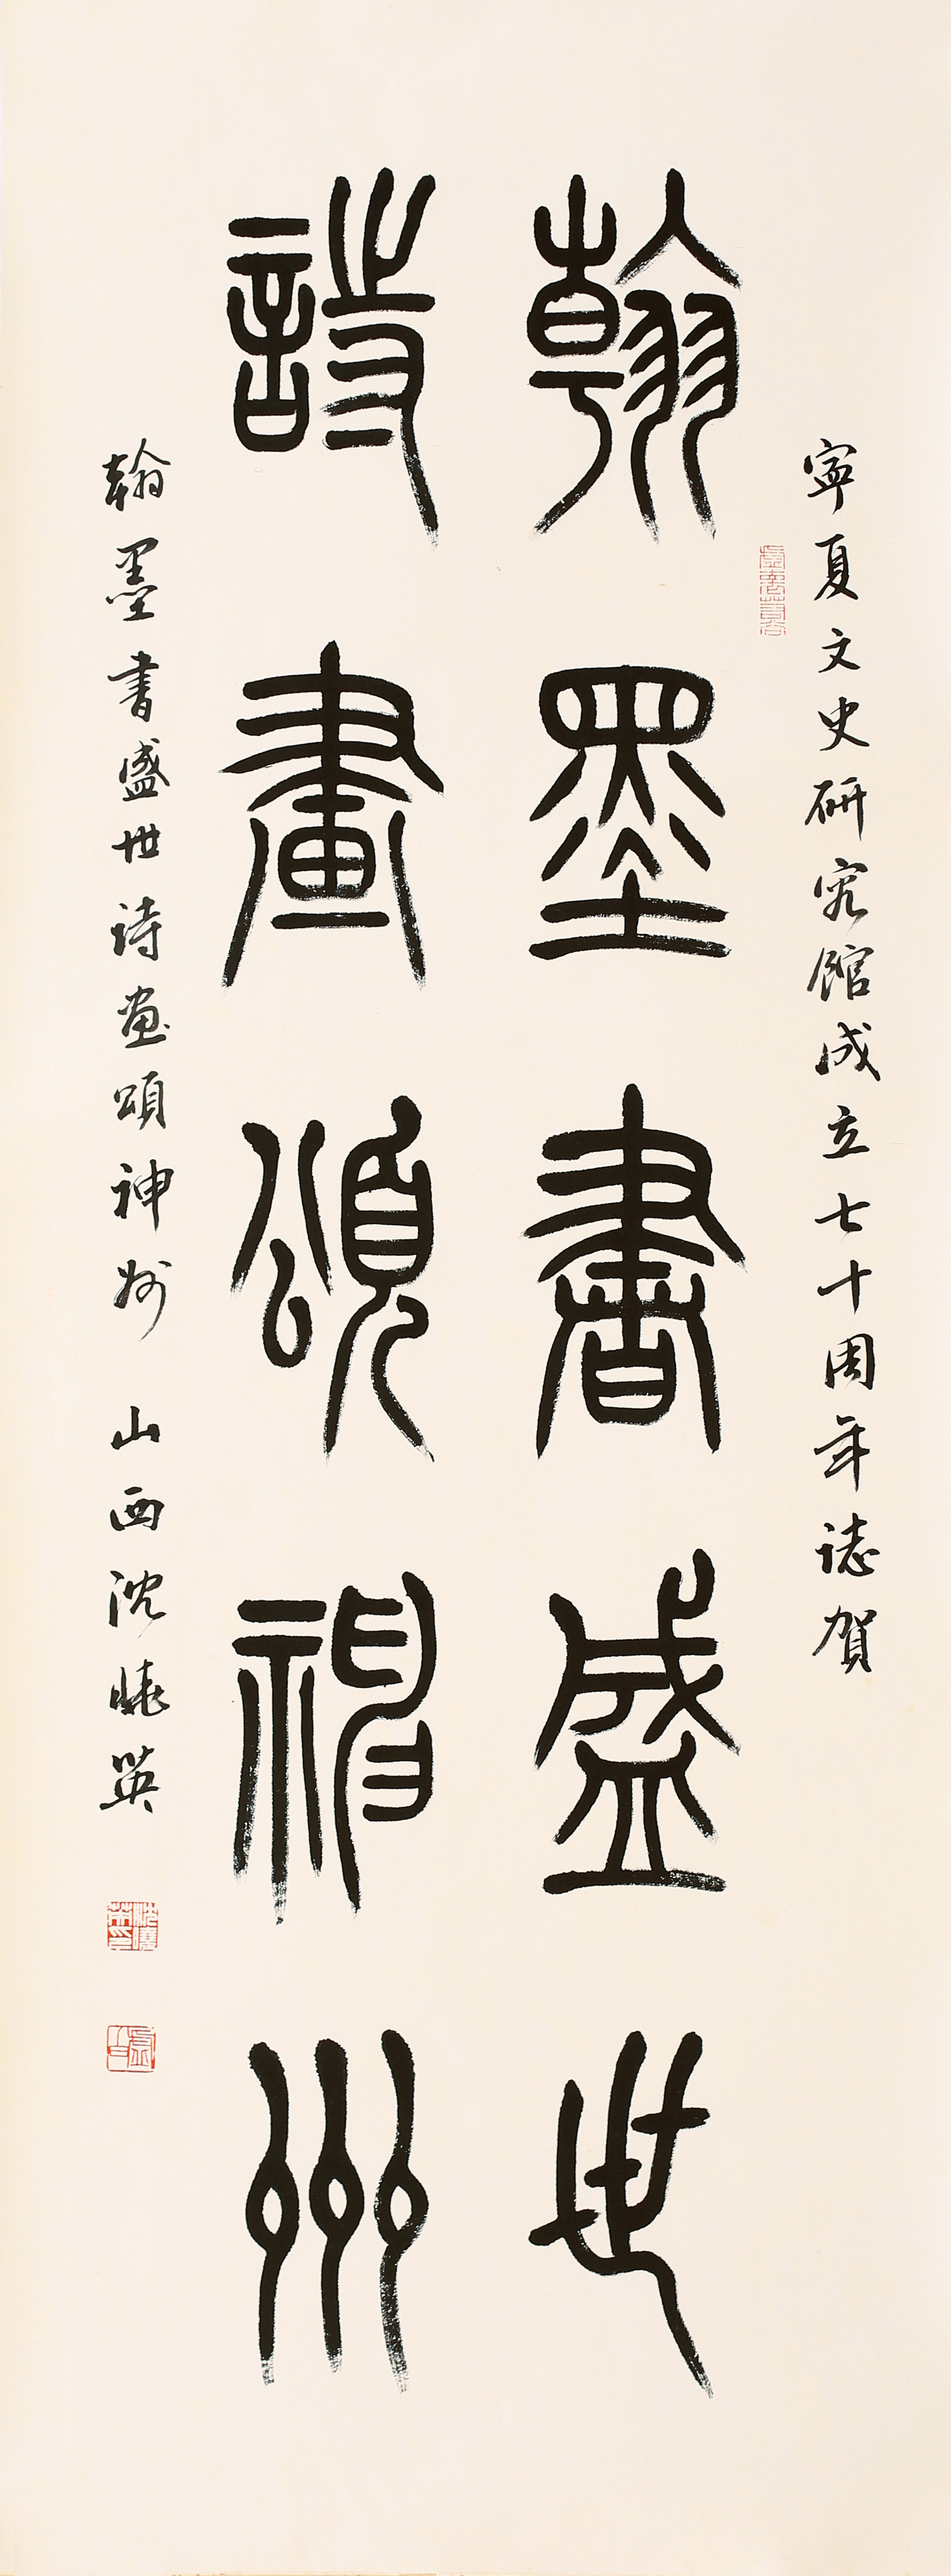 寧夏文史研究館成立七十周年誌賀
翰墨書盛世
詩畫頌神州
翰墨書盛世詩畫頌神州 山西沈曉英